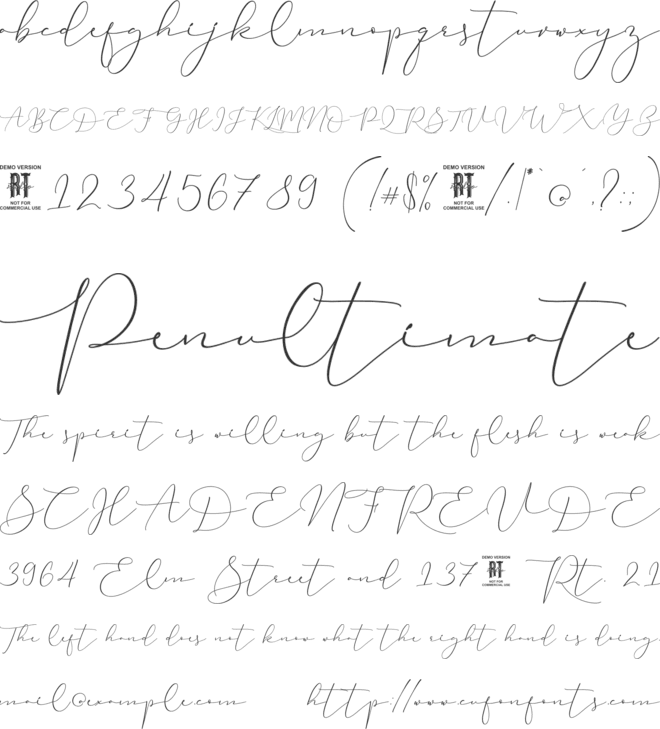 abcdefghijklmnopqrstuvwxyz
ABCDEFGHIJKLMNO PQRSTUVWXYZ
DEMO VERSION RT NOT FOR COMMERCIAL USE 123456789 (!#$% DEMO VERSION RT NOT FOR COMMERCIAL USE /.|*`@,?:;)
Penultimate
The spirit is willing but the flesh is weak
SCHADENFREUDE
3964 Elm Street and 137 DEMO VERSION RT NOT FOR COMMERCIAL USE Rt. 21
The left hand does not know what the right hand is doing.
email@example.com http://www.cufonfonts.com